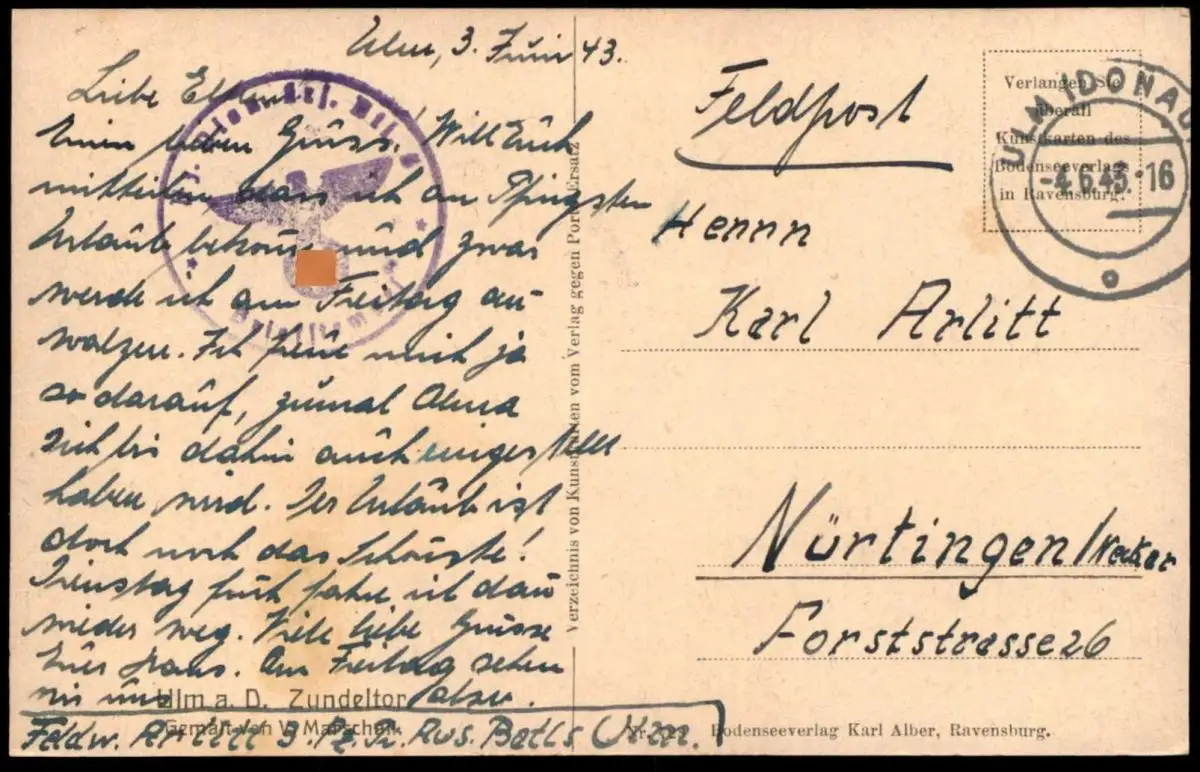 Ulm, 3. Juni 43.
Liebe Eltern
Einen lieben Grüss. Will Eüch
mitteilen dass ich an Pfingsten
Urlaub bekomme und zwar
werde ich am Freitag an-
walzen. Ich freue mich ja
so darauf, zümal Oma
sich bis dahin aüch eingestellt
haben wird. Der Urlaub ist
doch noch das Schönste!
Dienstag früh fahre ich dann
wieder weg. Viele liebe Grüsse
Eüer Hans. Am Freitag sehen
wir uns also.
Ulm a. D. Zundeltor
Gemalt von V.
Feldw. Arlitt 3. Pz. Aus. Batls Ulm.
Verzeichnis von Kunstkarten vom Verlag gegen Porto-Ersatz
Feldpost
Verlangen Sie
überall
Kunstkarten des
Bodenseeverlags
in Ravensburg.
ULM (DONAU)
-4.6.43.-16
Herrn
Karl Arlitt
Nürtingen/Neckar
Forststrasse 26
Bodenseeverlag Karl Alber, Ravensburg.